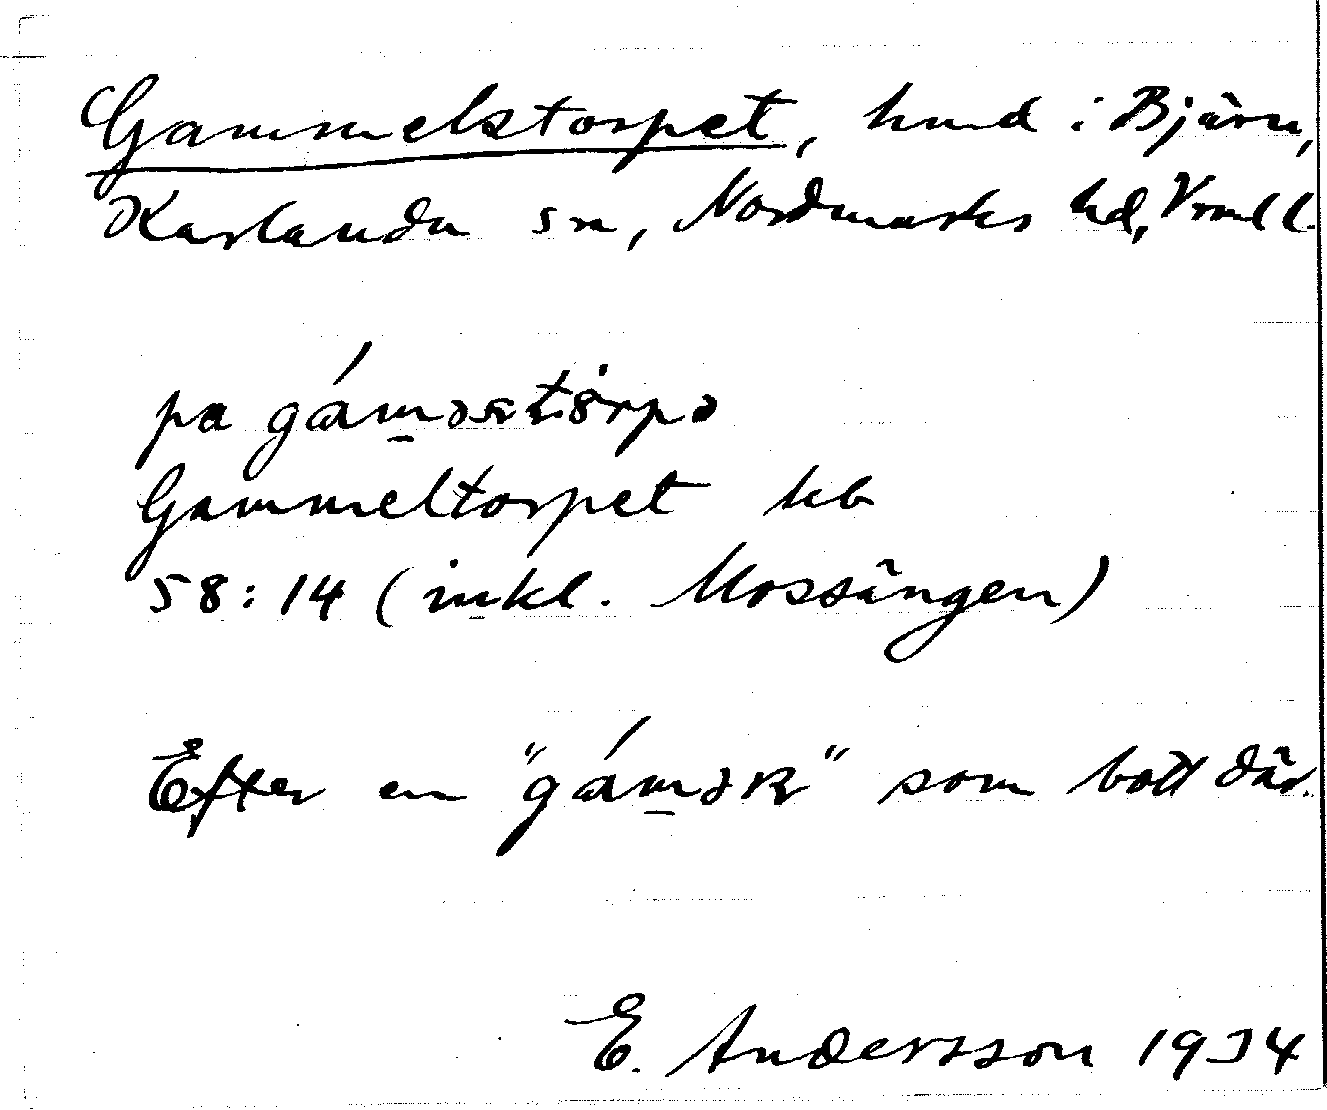 Gammelstorpet, hmd i Bjärn,
Karlanda sn, Nordmarks hd, Vrml l.
pa gáməstörpə
Gammeltorpet kb
58:14 (inkl. Mossängen)
Efter en "gámək" som bott där.
E. Andersson 1934